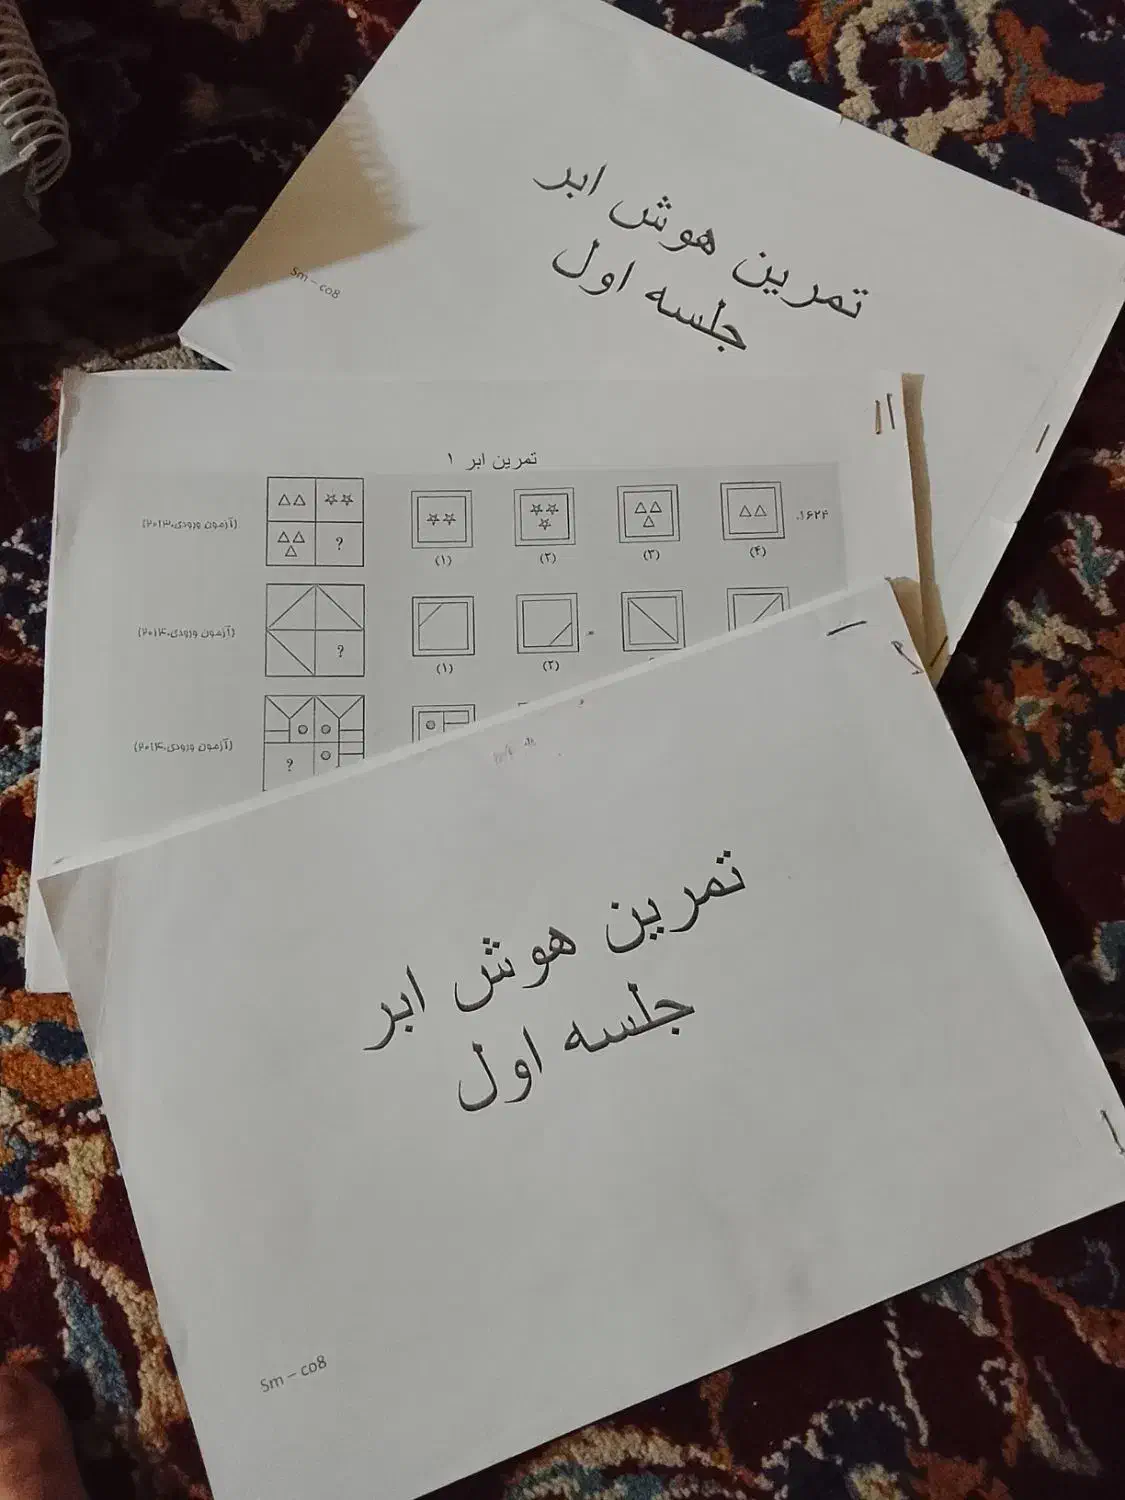 تمرین هوش ابر
جلسه اول
Sm – co8
تمرین ابر ۱
.۱۶۲۴
(آزمون ورودی،۲۰۱۳)
?
(۱) (۲) (۳) (۴)
(آزمون ورودی،۲۰۱۴)
?
(۱) (۲)
(آزمون ورودی،۲۰۱۴)
?
تمرین هوش ابر
جلسه اول
Sm – co8